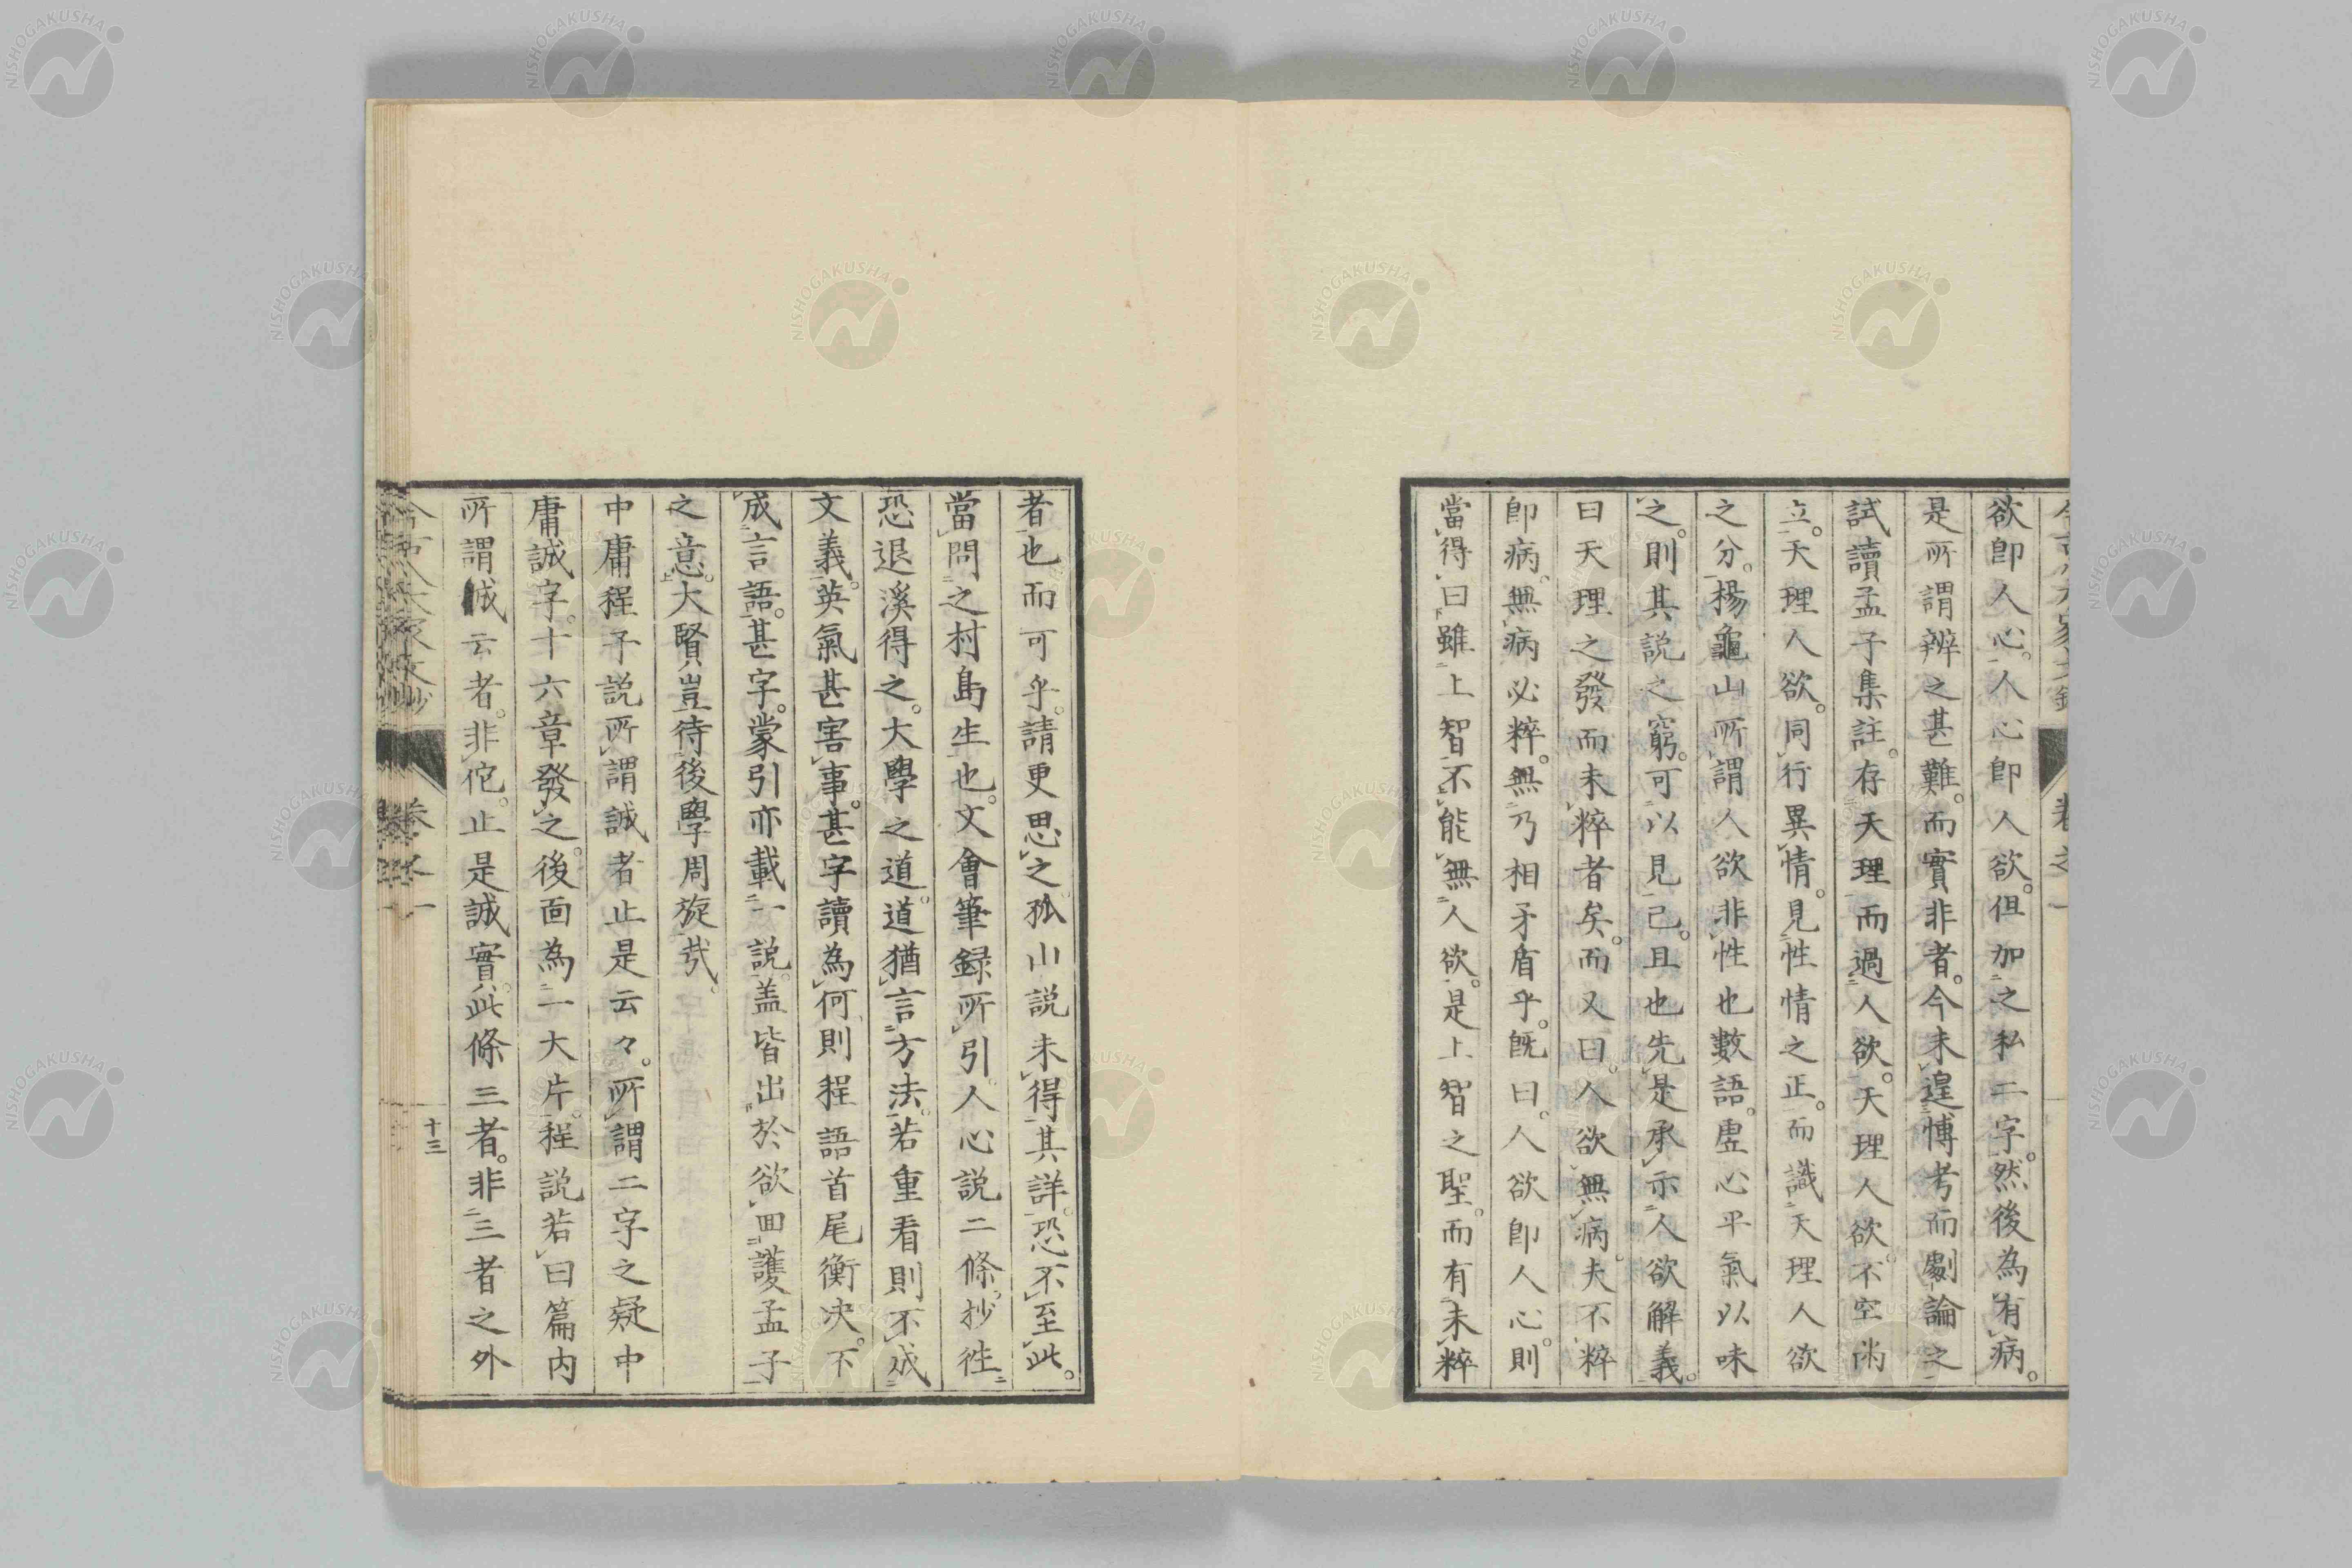 欲即人心。人心即人欲。但加之私二字。然後為有病。
是所謂辨之甚難。而實非者。今未遑博考而劇論之
試讀孟子集註。存天理而遏人欲。天理人欲。不空啇
立。天理人欲。同行異情。見性情之正。而識天理人欲
之分。楊龜山所謂人欲非性也數語。虛心平氣以味
之。則其説之窮。可以見已。且也先是承示人欲解義。
曰天理之發而未粹者矣。而又曰。人欲無病。夫不粹
即病。無病必粹。無乃相矛盾乎。既曰。人欲即人心。則
當得曰雖上智不能無人欲。是上智之聖。而有未粹
者也而可乎。請更思之。孤山説未得其詳。恐不至此。
當問之村島生也。文會筆録所引。人心説二條。抄徃
恐退溪得之。大學之道。道猶言方法。若重看則不成
文義。英氣甚害事。甚字讀為何則程語首尾衡决。不
成言語。甚字。蒙引亦載一説。盖皆出於欲回護孟子
之意。大賢豈待後學周旋㢤。
中庸程子説所謂誠者止是云々。所謂二字之疑中
庸誠字。十六章發之。後面為一大片。程説若曰篇内
所謂誠云者。非佗。止是誠實。此條三者。非三者之外
卷之一
十三